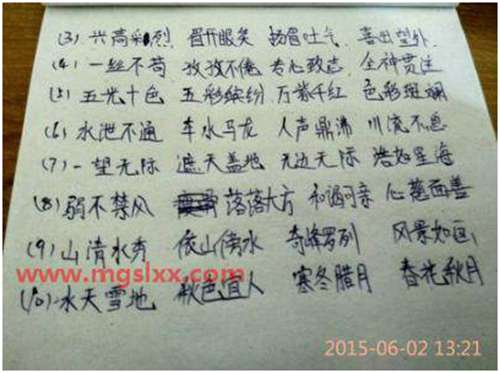 (3) 兴高彩烈 眉开眼笑 扬眉吐气 喜出望外
(4) 一丝不苟 孜孜不倦 专心致志 全神贯注
(5) 五光十色 五彩缤纷 万紫千红 色彩斑斓
(6) 水泄不通 车水马龙 人声鼎沸 川流不息
(7) 一望无际 遮天盖地 无边无际 浩如星海
(8) 弱不禁风 落落大方 和谒可亲 心慈面善
(9) 山清水秀 依山傍水 奇峰罗列 风景如画
www.mgslxx.com
(10) 冰天雪地 秋色宜人 寒冬腊月 春花秋月
2015-06-02 13:21